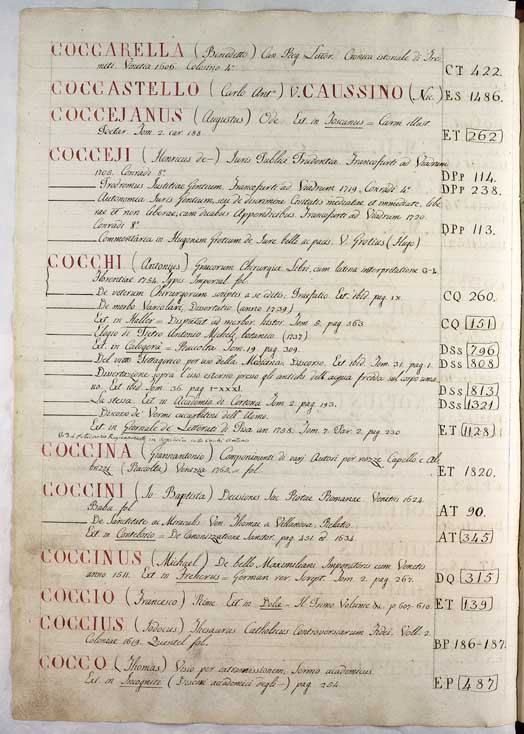 COCCARELLA (Benedetto) Can. Reg. Later. Cronica istoriale di Tre-
miti. Venetia 1606. Colosino 4º CT 422.
COCCASTELLO (Carlo Antº) V. CAUSSINO (Nic.) ES 1486.
COCCEJANUS (Augustus) Ode. Ext. in Toscanus = Carm. illust.
Poetar. Tom. 2. car. 188. ET 262
COCCEJI (Henricus de-) Juris Publici Prudentia. Francofurti ad Viadrum
1705. Conradi 8º DPp 114.
Prodromus Justitiae Gentium. Francofurti ad Viadrum 1719. Conradi 4º DPp 238.
Autonomia Juris Gentium, seu de discrimine Civitatis mediatae et immediatae, libe-
rae et non liberae, cum duabus Appendicibus. Francofurti ad Viadrum 1720.
Conradi 8º DPp 113.
Commentaria in Hugonem Grotium de Jure belli ac pacis. V. Grotius (Hugo)
COCCHI (Antonius) Graecorum Chirurgici Libri, cum latina interpretatione
Florentiae 1754. Typis Imperial. fol.
De veterum Chirurgorum scriptis a se editis, Praefatio. Ext. ibid. pag. IX. CQ 260.
De morbo Variolari, Dissertatio (anno 1739)
Ext. in Haller = Disputat. ad morbor. histor. Tom. 5. pag. 563 CQ 151
Elogio di Pietro Antonio Micheli botanico (1737)
Ext. in Calogerà = Raccolta Tom. 19. pag. 309. DSs 796
Del vitto Pittagorico per uso della Medicina. Discorso. Ext. ibid. Tom. 31. pag. 1. DSs 808
Dissertazione sopra l'uso esterno presso gli antichi dell'acqua fredda sul corpo uma-
no. Ext. ibid. Tom. 36. pag. I-XXXI. DSs 813
La stessa. Ext. in Academia di Cortona Tom. 2. pag. 193. DSs 1321
Discorso de' Vermi cucurbitini dell'Uomo.
Ext. in Giornale de' Letterati di Pisa an. 1758. Tom. 7. Par. 2. pag. 230 ET 1128
COCCINA (Gianantonio) Componimenti di varj Autori per nozze Capello e Al-
brizzi (Raccolta) Venezia 1762. fol. ET 1820.
COCCINI (Jo. Baptista) Decisiones Sac. Rotae Romanae. Venetiis 1624.
Baba fol. AT 90.
De Sanctitate et Miraculis Ven. Thomae a Villanova, Relatio.
Ext. in Contelorio = De Canonizatione Sanctor. pag. 431. ed. 1634. AT 345
COCCINUS (Michael) De bello Maximiliani Imperatoris cum Venetis
anno 1511. Ext. in Freherus = German. rer. Script. Tom. 2. pag. 267. DQ 315
COCCIO (Francesco) Rime. Ext. in Dolce = Il Primo Volume &c. p. 607-610. ET 139
COCCIUS (Jodocus) Thesaurus Catholicus Controversiarum Fidei. Voll. 2.
Coloniae 1619. Quentel fol. BP 186-187.
COCCO (Thomas) Visio per extramissionem, Sermo academicus.
Ext. in Incogniti (Discorsi academici degli-) pag. 254. EP 487